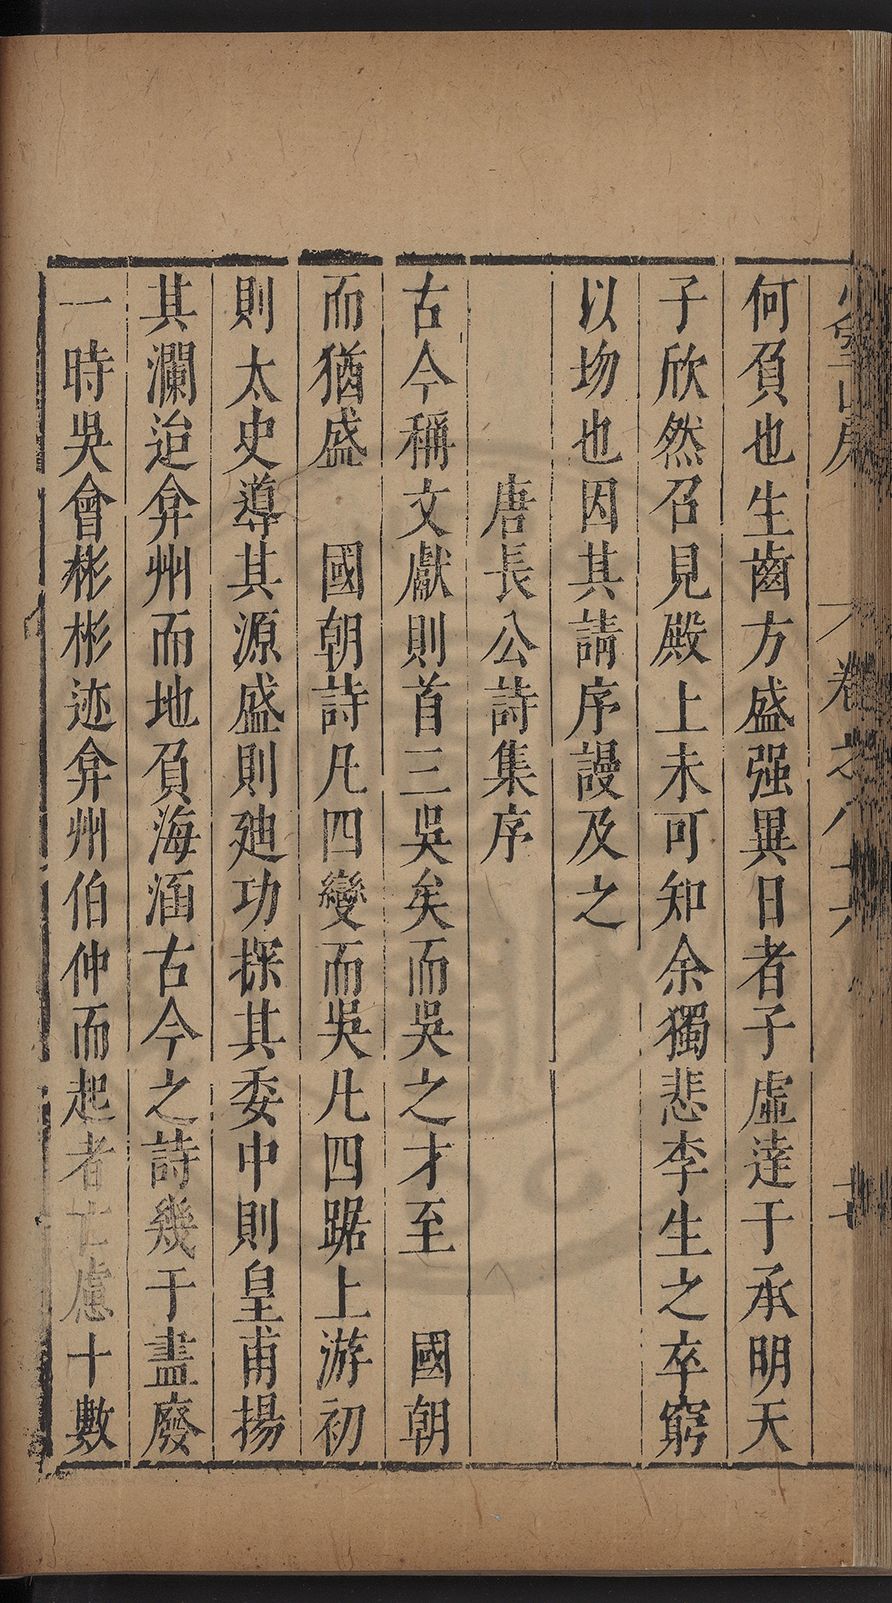 卷之八十六
何負也生齒方盛强異日者子虛達于承明天
子欣然召見殿上未可知余獨悲李生之卒窮
以歾也因其請序謾及之
唐長公詩集序
古今稱文獻則首三吳矣而吳之才至 國朝
而猶盛 國朝詩凡四變而吳凡四踞上游初
則太史導其源盛則廸功探其委中則皇甫揚
其瀾迨弇州而地負海涵古今之詩幾于盡廢
一時吳會彬彬迹弇州伯仲而起者亡慮十數